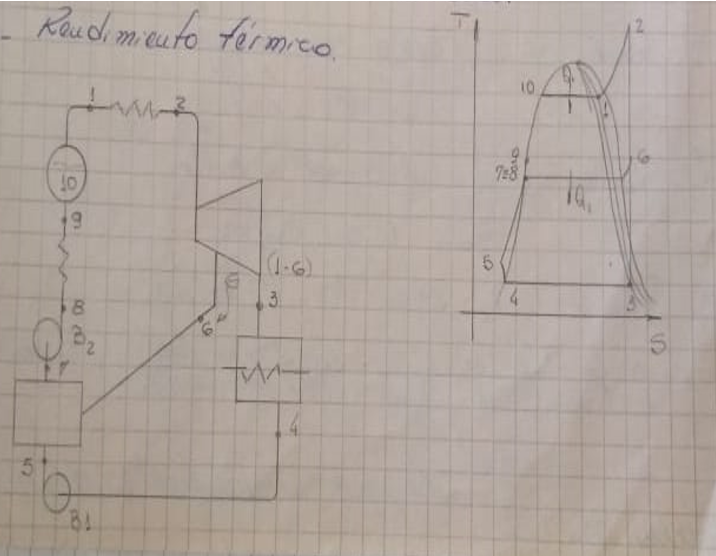 - Rendimiento térmico.
1
2
10
9
8
B2
7
5
B1
6
(1-6)
3
4
T
2
10
Q1
1
9
7=8
6
Q1
5
4
3
S